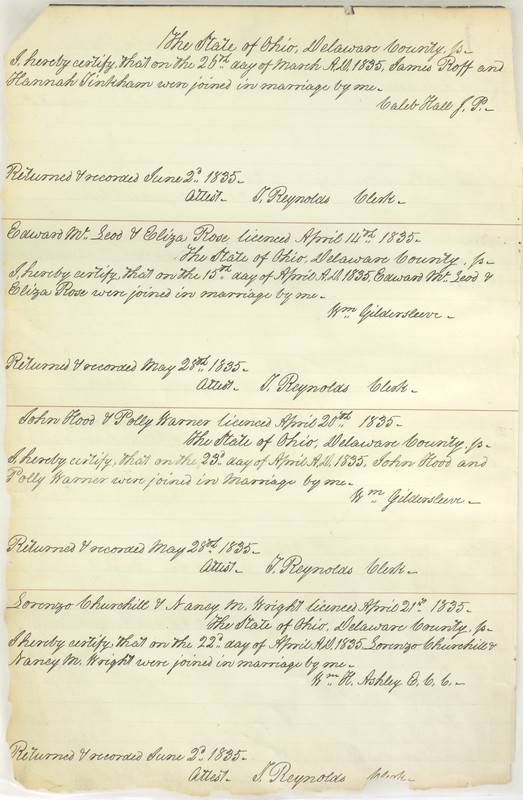 The State of Ohio, Delaware County, ss
I hereby certify, that on the 26th day of March A.D. 1835, James Roff and
Hannah Tinkham were joined in marriage by me.
Caleb Hall J. P.
Returned & recorded June 2d 1835.
Attest. T. Reynolds Clerk.
Edward Mc Leod & Eliza Rose licenced April 14th 1835.
The State of Ohio, Delaware County, ss
I hereby certify, that on the 15th day of April A.D. 1835, Edward Mc Leod &
Eliza Rose were joined in marriage by me.
Wm Gildersleeve.
Returned & recorded May 28th 1835.
Attest. T. Reynolds Clerk.
John Hood & Polly Warner licenced April 20th 1835.
The State of Ohio, Delaware County, ss
I hereby certify, that on the 23d day of April A.D. 1835, John Hood and
Polly Warner were joined in Marriage by me.
Wm Gildersleeve.
Returned & recorded May 28th 1835.
Attest. T. Reynolds Clerk.
Lorenzo Churchill & Nancy M. Wright licenced April 21st 1835.
The State of Ohio, Delaware County, ss
I hereby certify, that on the 22d day of April A.D. 1835 Lorenzo Churchill &
Nancy M. Wright were joined in marriage by me.
Wm H. Ashley E. C. C.
Returned & recorded June 2d 1835.
Attest. T. Reynolds Clerk.